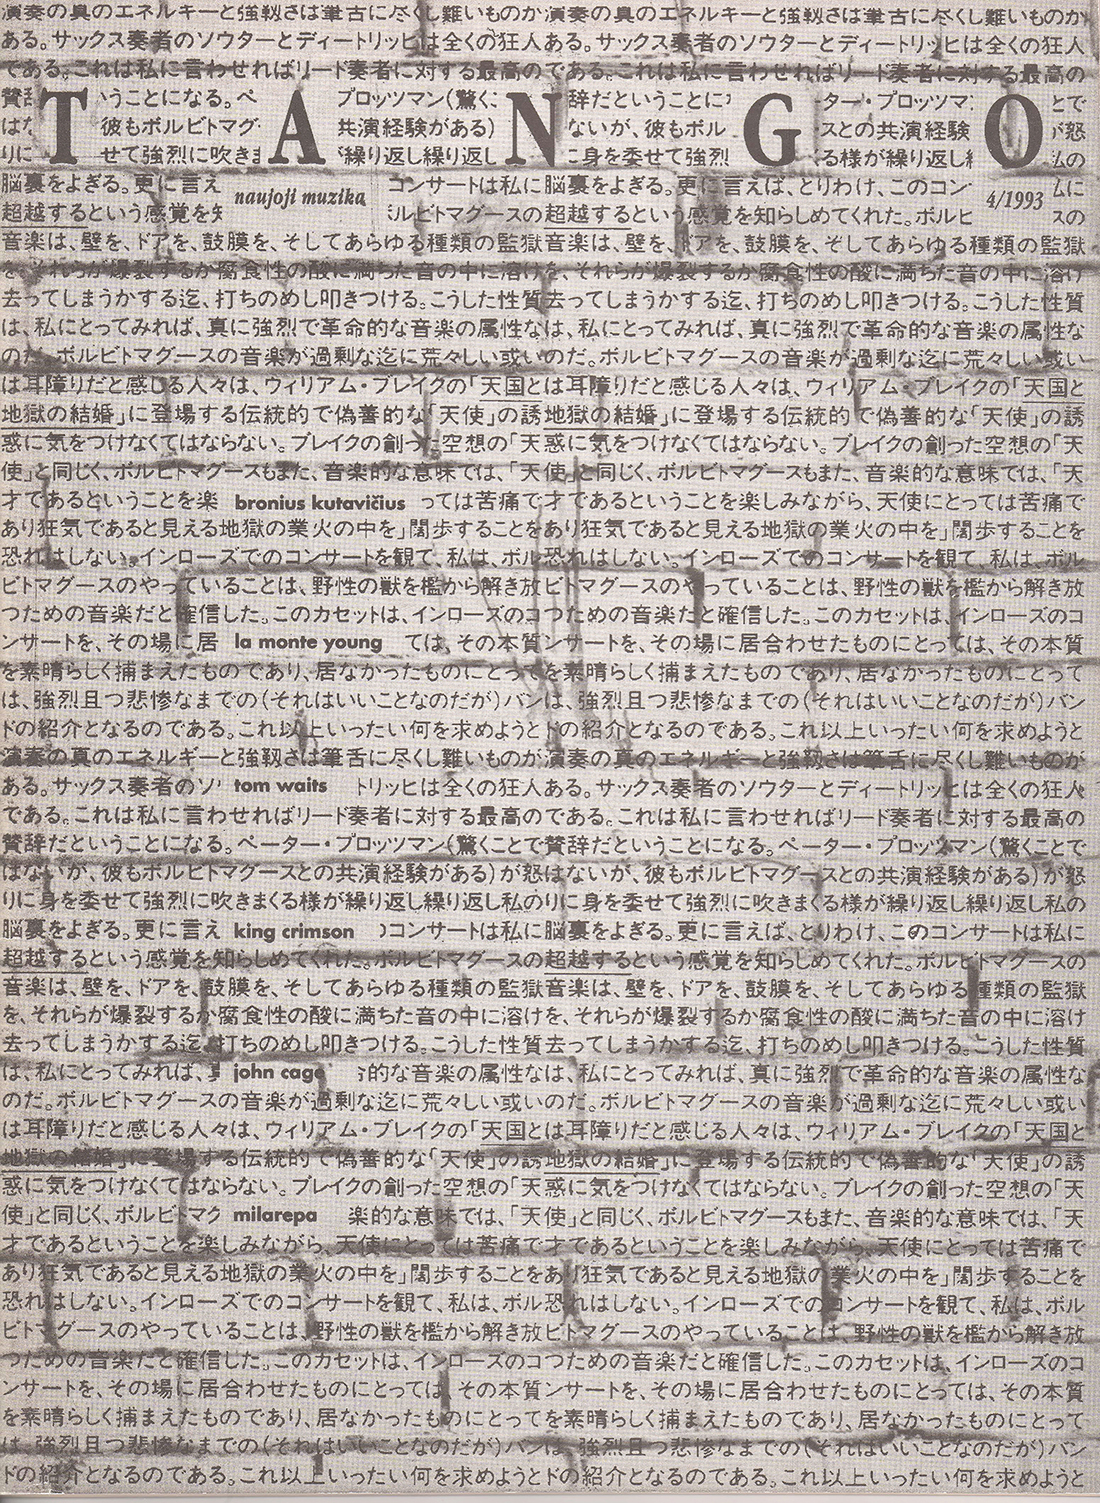 演奏の真のエネルギーと強靱さは筆舌に尽くし難いものが演奏の真のエネルギーと強靱さは筆舌に尽くし難いものが
ある。サックス奏者のソウターとディートリッヒは全くの狂人ある。サックス奏者のソウターとディートリッヒは全くの狂人
である。これは私に言わせればリード奏者に対する最高のである。これは私に言わせればリード奏者に対する最高の
TANGO
賛辞 いうことになる。ペ プロッツマン(驚くこ 辞だということに ター・プロッツマン とで
はな 彼もボルビトマグ 共演経験がある) ないが、彼もボル スとの共演経験 が怒
りに せて強烈に吹きま が繰り返し繰り返し に身を委せて強烈 る様が繰り返し 私の
脳裏をよぎる。更に言え コンサートは私に脳裏をよぎる。更に言えば、とりわけ、このコン ムに
naujoji muzika 4/1993
超越するという感覚を知 ボルビトマグースの超越するという感覚を知らしめてくれた。ボルビ スの
音楽は、壁を、ドアを、鼓膜を、そしてあらゆる種類の監獄音楽は、壁を、ドアを、鼓膜を、そしてあらゆる種類の監獄
を、それらが爆裂するか腐食性の酸に満ちた音の中に溶けを、それらが爆裂するか腐食性の酸に満ちた音の中に溶け
去ってしまうかする迄、打ちのめし叩きつける。こうした性質去ってしまうかする迄、打ちのめし叩きつける。こうした性質
は、私にとってみれば、真に強烈で革命的な音楽の属性なは、私にとってみれば、真に強烈で革命的な音楽の属性な
のだ。ボルビトマグースの音楽が過剰な迄に荒々しい或いのだ。ボルビトマグースの音楽が過剰な迄に荒々しい或い
は耳障りだと感じる人々は、ウィリアム・ブレイクの「天国とは耳障りだと感じる人々は、ウィリアム・ブレイクの「天国と
地獄の結婚」に登場する伝統的で偽善的な「天使」の誘地獄の結婚」に登場する伝統的で偽善的な「天使」の誘
惑に気をつけなくてはならない。ブレイクの創った空想の「天惑に気をつけなくてはならない。ブレイクの創った空想の「天
使」と同じく、ボルビトマグースもまた、音楽的な意味では、「天使」と同じく、ボルビトマグースもまた、音楽的な意味では、「天
才であるということを楽 bronius kutavičius っては苦痛で才であるということを楽しみながら、天使にとっては苦痛で
あり狂気であると見える地獄の業火の中を」闊歩することをあり狂気であると見える地獄の業火の中を」闊歩することを
恐れはしない。インローズでのコンサートを観て、私は、ボル恐れはしない。インローズでのコンサートを観て、私は、ボル
ビトマグースのやっていることは、野性の獣を檻から解き放ビトマグースのやっていることは、野性の獣を檻から解き放
つための音楽だと確信した。このカセットは、インローズのコつための音楽だと確信した。このカセットは、インローズのコ
ンサートを、その場に居 la monte young ては、その本質ンサートを、その場に居合わせたものにとっては、その本質
を素晴らしく捕まえたものであり、居なかったものにとってを素晴らしく捕まえたものであり、居なかったものにとって
は、強烈且つ悲惨なまでの(それはいいことなのだが)バンは、強烈且つ悲惨なまでの(それはいいことなのだが)バン
ドの紹介となるのである。これ以上いったい何を求めようとドの紹介となるのである。これ以上いったい何を求めようと
演奏の真のエネルギーと強靱さは筆舌に尽くし難いものが演奏の真のエネルギーと強靱さは筆舌に尽くし難いものが
ある。サックス奏者のソ tom waits トリッヒは全くの狂人ある。サックス奏者のソウターとディートリッヒは全くの狂人
である。これは私に言わせればリード奏者に対する最高のである。これは私に言わせればリード奏者に対する最高の
賛辞だということになる。ペーター・プロッツマン(驚くことで賛辞だということになる。ペーター・プロッツマン(驚くことで
はないが、彼もボルビトマグースとの共演経験がある)が怒はないが、彼もボルビトマグースとの共演経験がある)が怒
りに身を委せて強烈に吹きまくる様が繰り返し繰り返し私のりに身を委せて強烈に吹きまくる様が繰り返し繰り返し私の
脳裏をよぎる。更に言え king crimson コンサートは私に脳裏をよぎる。更に言えば、とりわけ、このコンサートは私に
超越するという感覚を知らしめてくれた。ボルビトマグースの超越するという感覚を知らしめてくれた。ボルビトマグースの
音楽は、壁を、ドアを、鼓膜を、そしてあらゆる種類の監獄音楽は、壁を、ドアを、鼓膜を、そしてあらゆる種類の監獄
を、それらが爆裂するか腐食性の酸に満ちた音の中に溶けを、それらが爆裂するか腐食性の酸に満ちた音の中に溶け
去ってしまうかする迄、打ちのめし叩きつける。こうした性質去ってしまうかする迄、打ちのめし叩きつける。こうした性質
は、私にとってみれば、 john cage 的な音楽の属性なは、私にとってみれば、真に強烈で革命的な音楽の属性な
のだ。ボルビトマグースの音楽が過剰な迄に荒々しい或いのだ。ボルビトマグースの音楽が過剰な迄に荒々しい或い
は耳障りだと感じる人々は、ウィリアム・ブレイクの「天国とは耳障りだと感じる人々は、ウィリアム・ブレイクの「天国と
地獄の結婚」に登場する伝統的で偽善的な「天使」の誘地獄の結婚」に登場する伝統的で偽善的な「天使」の誘
惑に気をつけなくてはならない。ブレイクの創った空想の「天惑に気をつけなくてはならない。ブレイクの創った空想の「天
使」と同じく、ボルビトマク milarepa 楽的な意味では、「天使」と同じく、ボルビトマグースもまた、音楽的な意味では、「天
才であるということを楽しみながら、天使にとっては苦痛で才であるということを楽しみながら、天使にとっては苦痛で
あり狂気であると見える地獄の業火の中を」闊歩することをあり狂気であると見える地獄の業火の中を」闊歩することを
恐れはしない。インローズでのコンサートを観て、私は、ボル恐れはしない。インローズでのコンサートを観て、私は、ボル
ビトマグースのやっていることは、野性の獣を檻から解き放ビトマグースのやっていることは、野性の獣を檻から解き放
つための音楽だと確信した。このカセットは、インローズのコつための音楽だと確信した。このカセットは、インローズのコ
ンサートを、その場に居合わせたものにとっては、その本質ンサートを、その場に居合わせたものにとっては、その本質
を素晴らしく捕まえたものであり、居なかったものにとってを素晴らしく捕まえたものであり、居なかったものにとって
は、強烈且つ悲惨なまでの(それはいいことなのだが)バンは、強烈且つ悲惨なまでの(それはいいことなのだが)バン
ドの紹介となるのである。これ以上いったい何を求めようとドの紹介となるのである。これ以上いったい何を求めようと